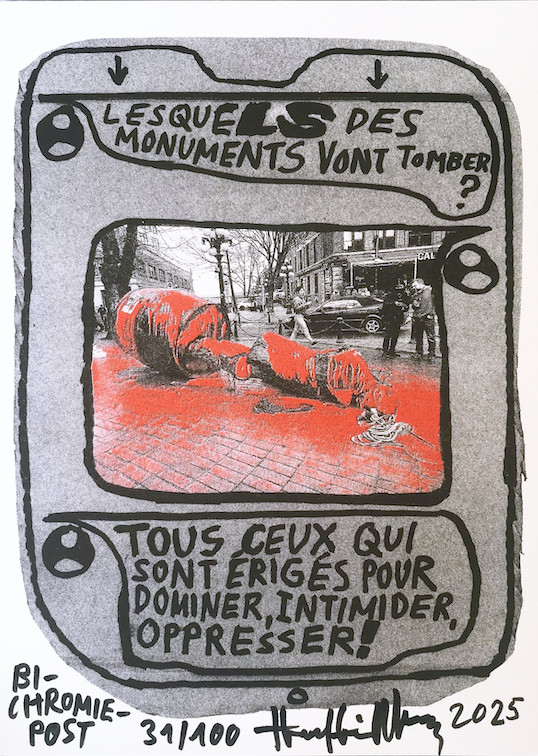 LESQUELS DES
MONUMENTS VONT TOMBER
?
CAL
TOUS CEUX QUI
SONT ÉRIGÉS POUR
DOMINER, INTIMIDER,
OPPRESSER!
BI-
CHROMIE-
POST
31/100
2025